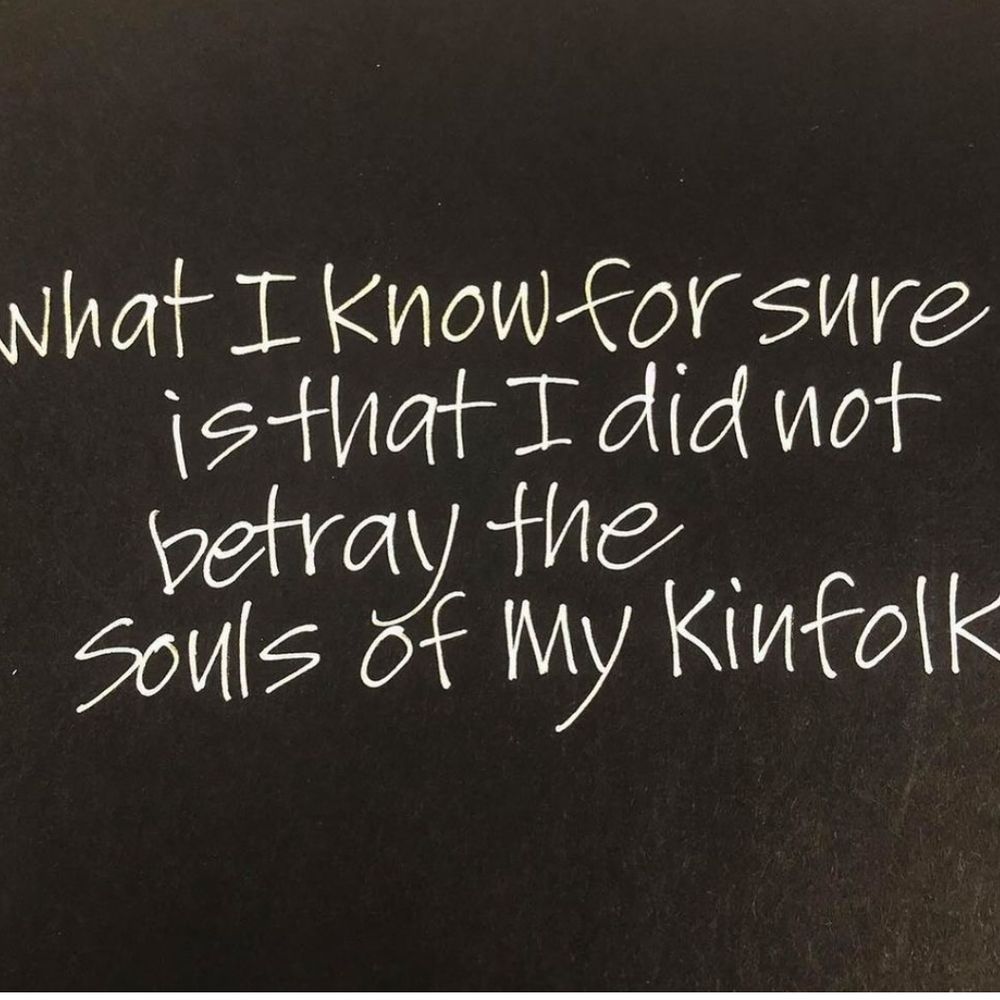 what I know for sure
is that I did not
betray the
souls of my kinfolk